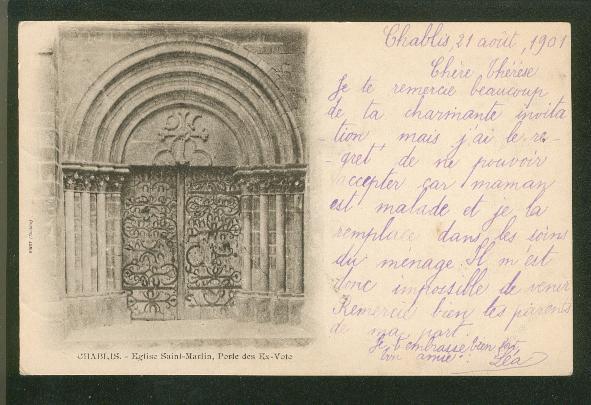 Chablis, 21 août, 1901
Chère Thérèse
Je te remercie beaucoup
de ta charmante invita
-tion mais j'ai le re-
-gret de ne pouvoir
accepter car maman
est malade et je la
remplace dans les soins
du ménage. Il m'est
donc impossible de venir
Remercie bien tes parents
de ma part.
Je t'embrasse bien fort,
ton amie.
Léa
CHABLIS. - Eglise Saint-Martin, Porte des Ex-Voto